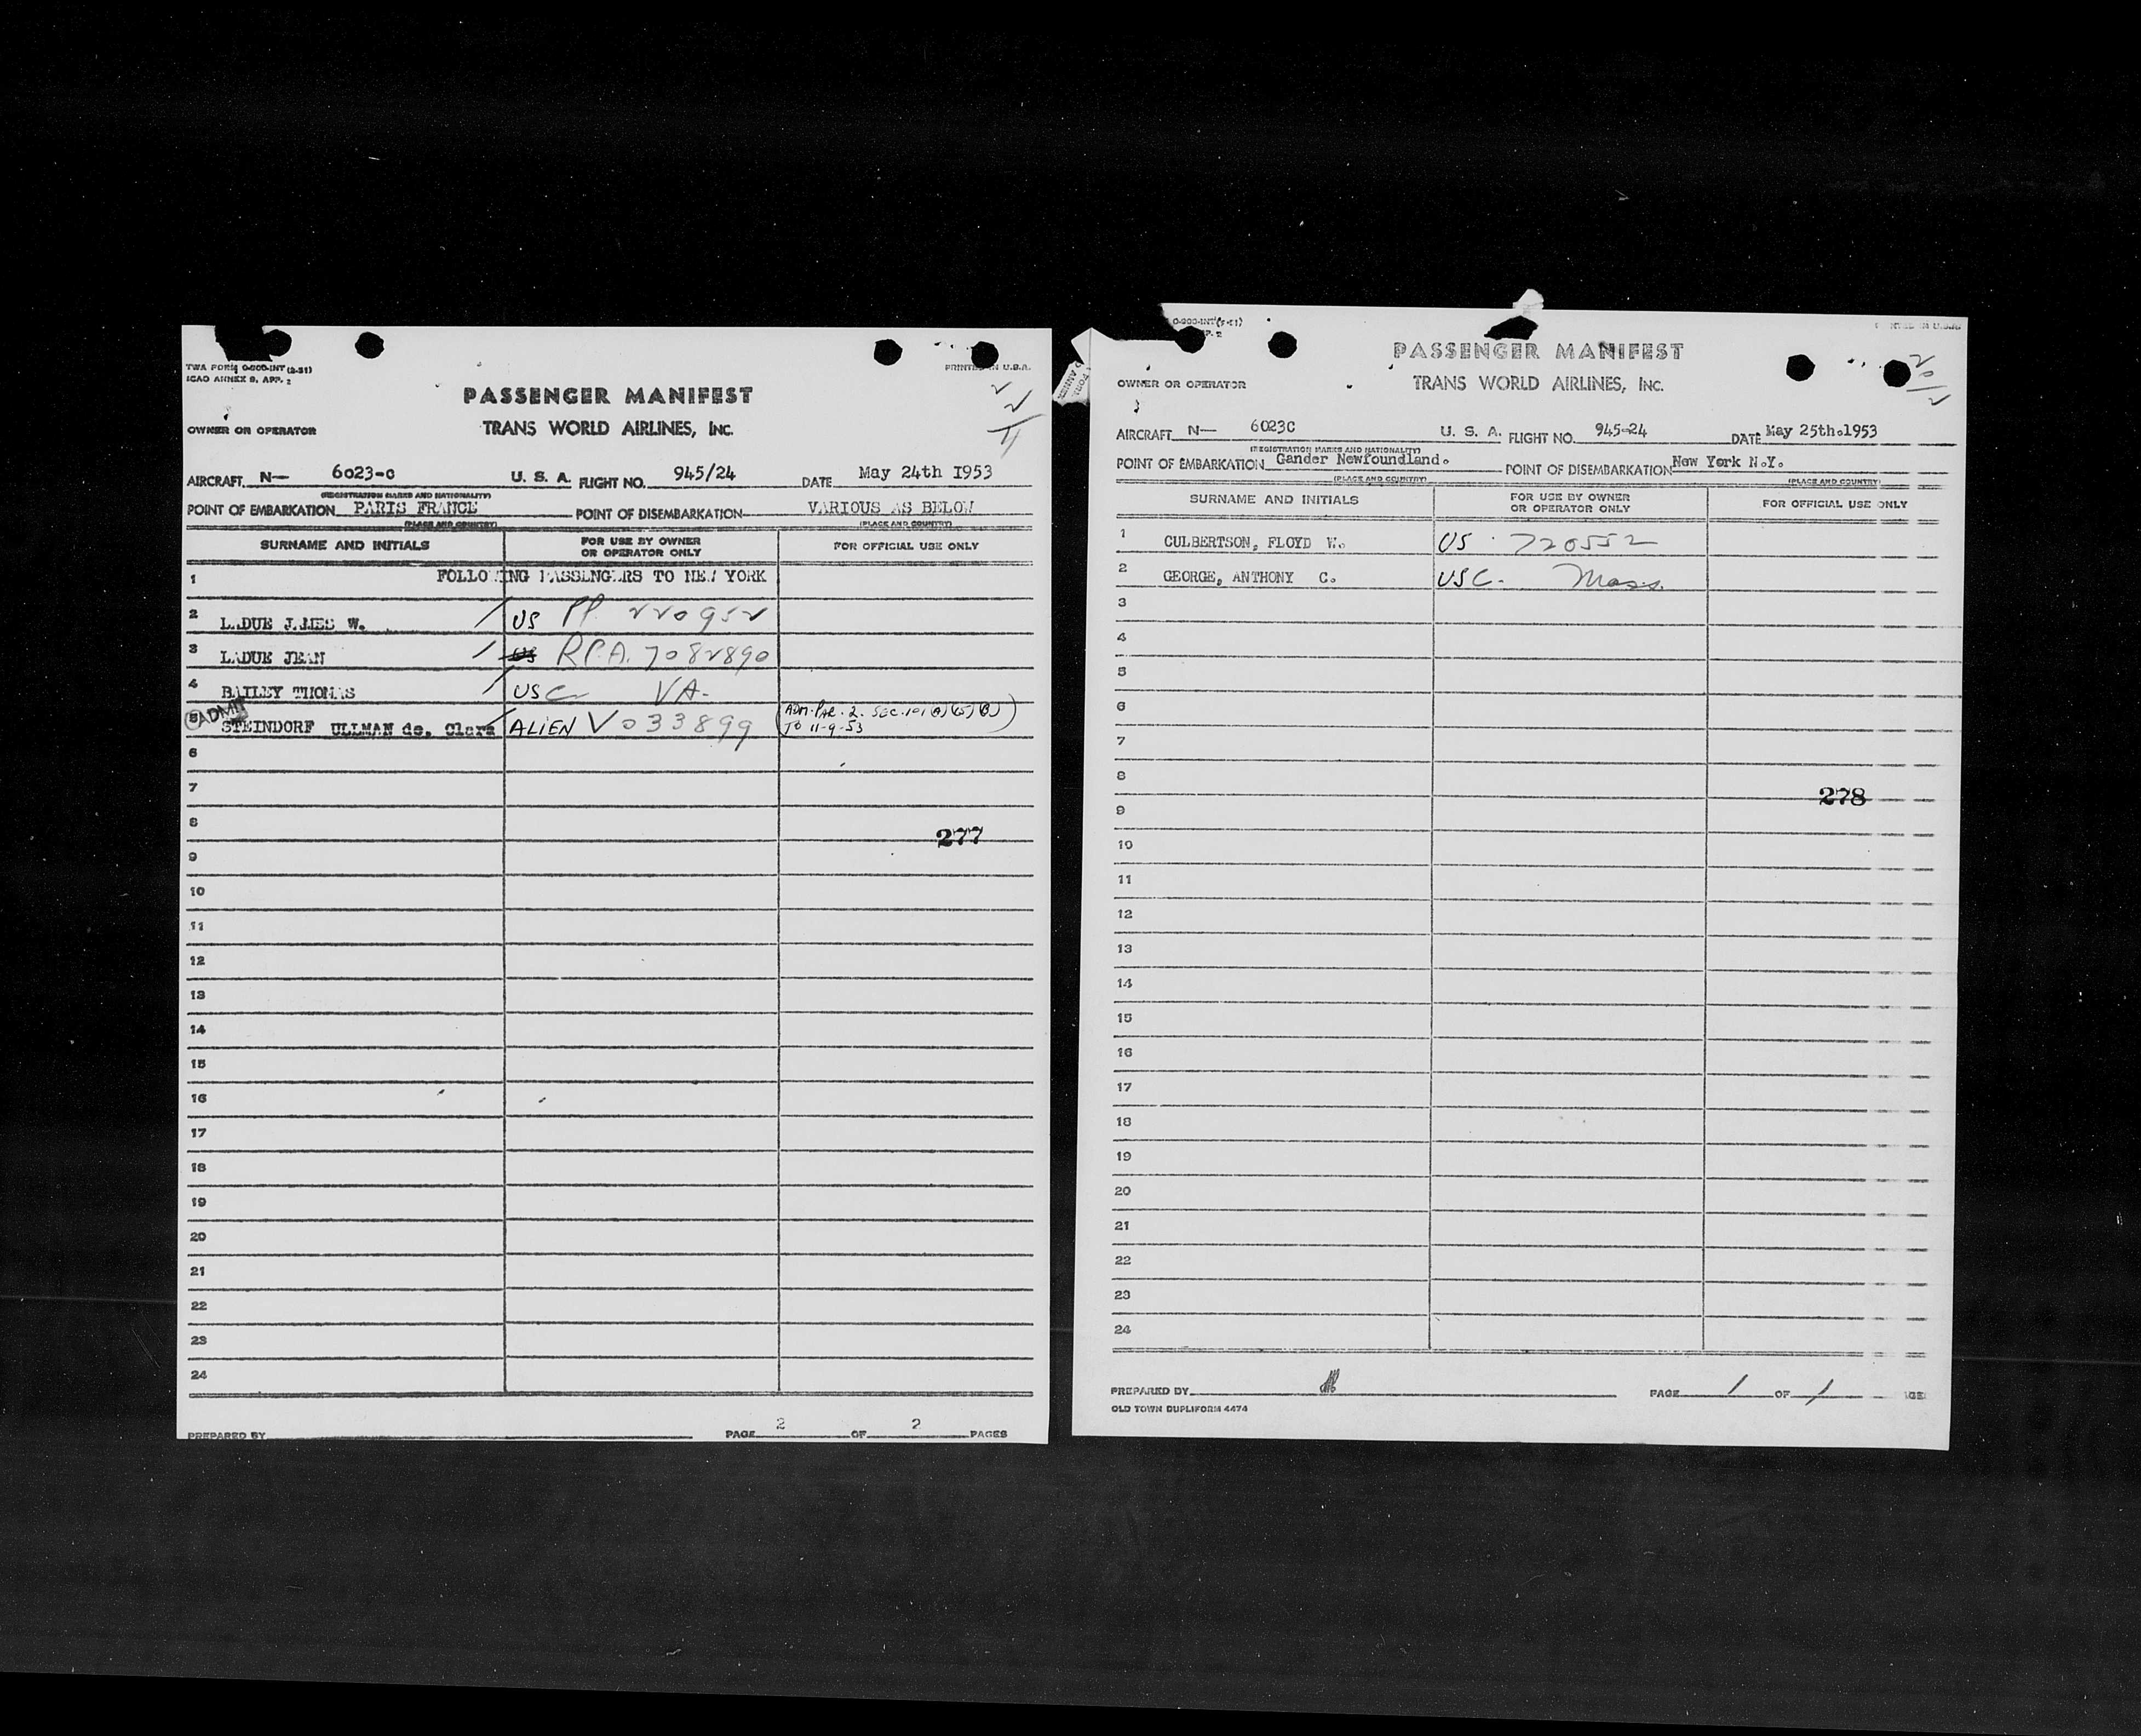 TWA FORM O-900-INT (3-51)
ICAO ANNEX 9, APP. 2
PRINTED IN U.S.A.
PASSENGER MANIFEST
OWNER OR OPERATOR TRANS WORLD AIRLINES, INC.
AIRCRAFT N— 6023-C U. S. A. FLIGHT NO. 945/24 DATE May 24th I953
(REGISTRATION MARKS AND NATIONALITY)
POINT OF EMBARKATION PARIS FRANCE POINT OF DISEMBARKATION VARIOUS AS BELOW
(PLACE AND COUNTRY) (PLACE AND COUNTRY)
SURNAME AND INITIALS FOR USE BY OWNER OR OPERATOR ONLY FOR OFFICIAL USE ONLY
1 FOLLOWING PASSENGERS TO NEW YORK
2 LADUE JAMES W. / US PP. 220952
3 LADUE JEAN / US R.P.A. 7082890
4 BAILEY THOMAS / USC VA.
5 ADMIT STEINDORF ULLMAN de. Clara ALIEN V033899 (ADM. PAR. 2. SEC. 101 (A) (15) (B) TO 11-9-53)
6
7
8
277
9
10
11
12
13
14
15
16
17
18
19
20
21
22
23
24
PREPARED BY PAGE 2 OF 2 PAGES
O-900-INT (3-51)
APP. 2
PRINTED IN U.S.A.
PASSENGER MANIFEST
OWNER OR OPERATOR TRANS WORLD AIRLINES, INC.
AIRCRAFT N— 6023C U. S. A. FLIGHT NO. 945-24 DATE May 25th.1953
(REGISTRATION MARKS AND NATIONALITY)
POINT OF EMBARKATION Gander Newfoundland. POINT OF DISEMBARKATION New York N.Y.
(PLACE AND COUNTRY) (PLACE AND COUNTRY)
SURNAME AND INITIALS FOR USE BY OWNER OR OPERATOR ONLY FOR OFFICIAL USE ONLY
1 CULBERTSON, FLOYD W. US 720552
2 GEORGE, ANTHONY C. USC. Mass.
3
4
5
6
7
8
278
9
10
11
12
13
14
15
16
17
18
19
20
21
22
23
24
PREPARED BY PAGE 1 OF 1
OLD TOWN DUPLIFORM 4474